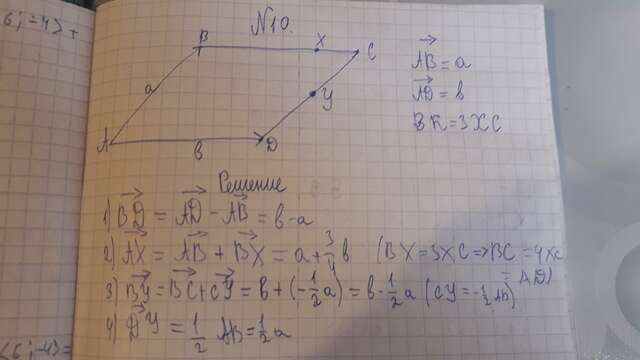 6; -4) +
№10.
B
X
C
a
Y
A
b
D
AB = a
AD = b
BK = 3XC
Решение
1) BD = AD - AB = b - a
2) AX = AB + BX = a + 3/4 b (BX = 3XC => BC = 4XC
= AD)
3) BY = BC + CY = b + (-1/2 a) = b - 1/2 a (CY = -1/2 AB)
4) DY = 1/2 AB = 1/2 a
<6; -4) =